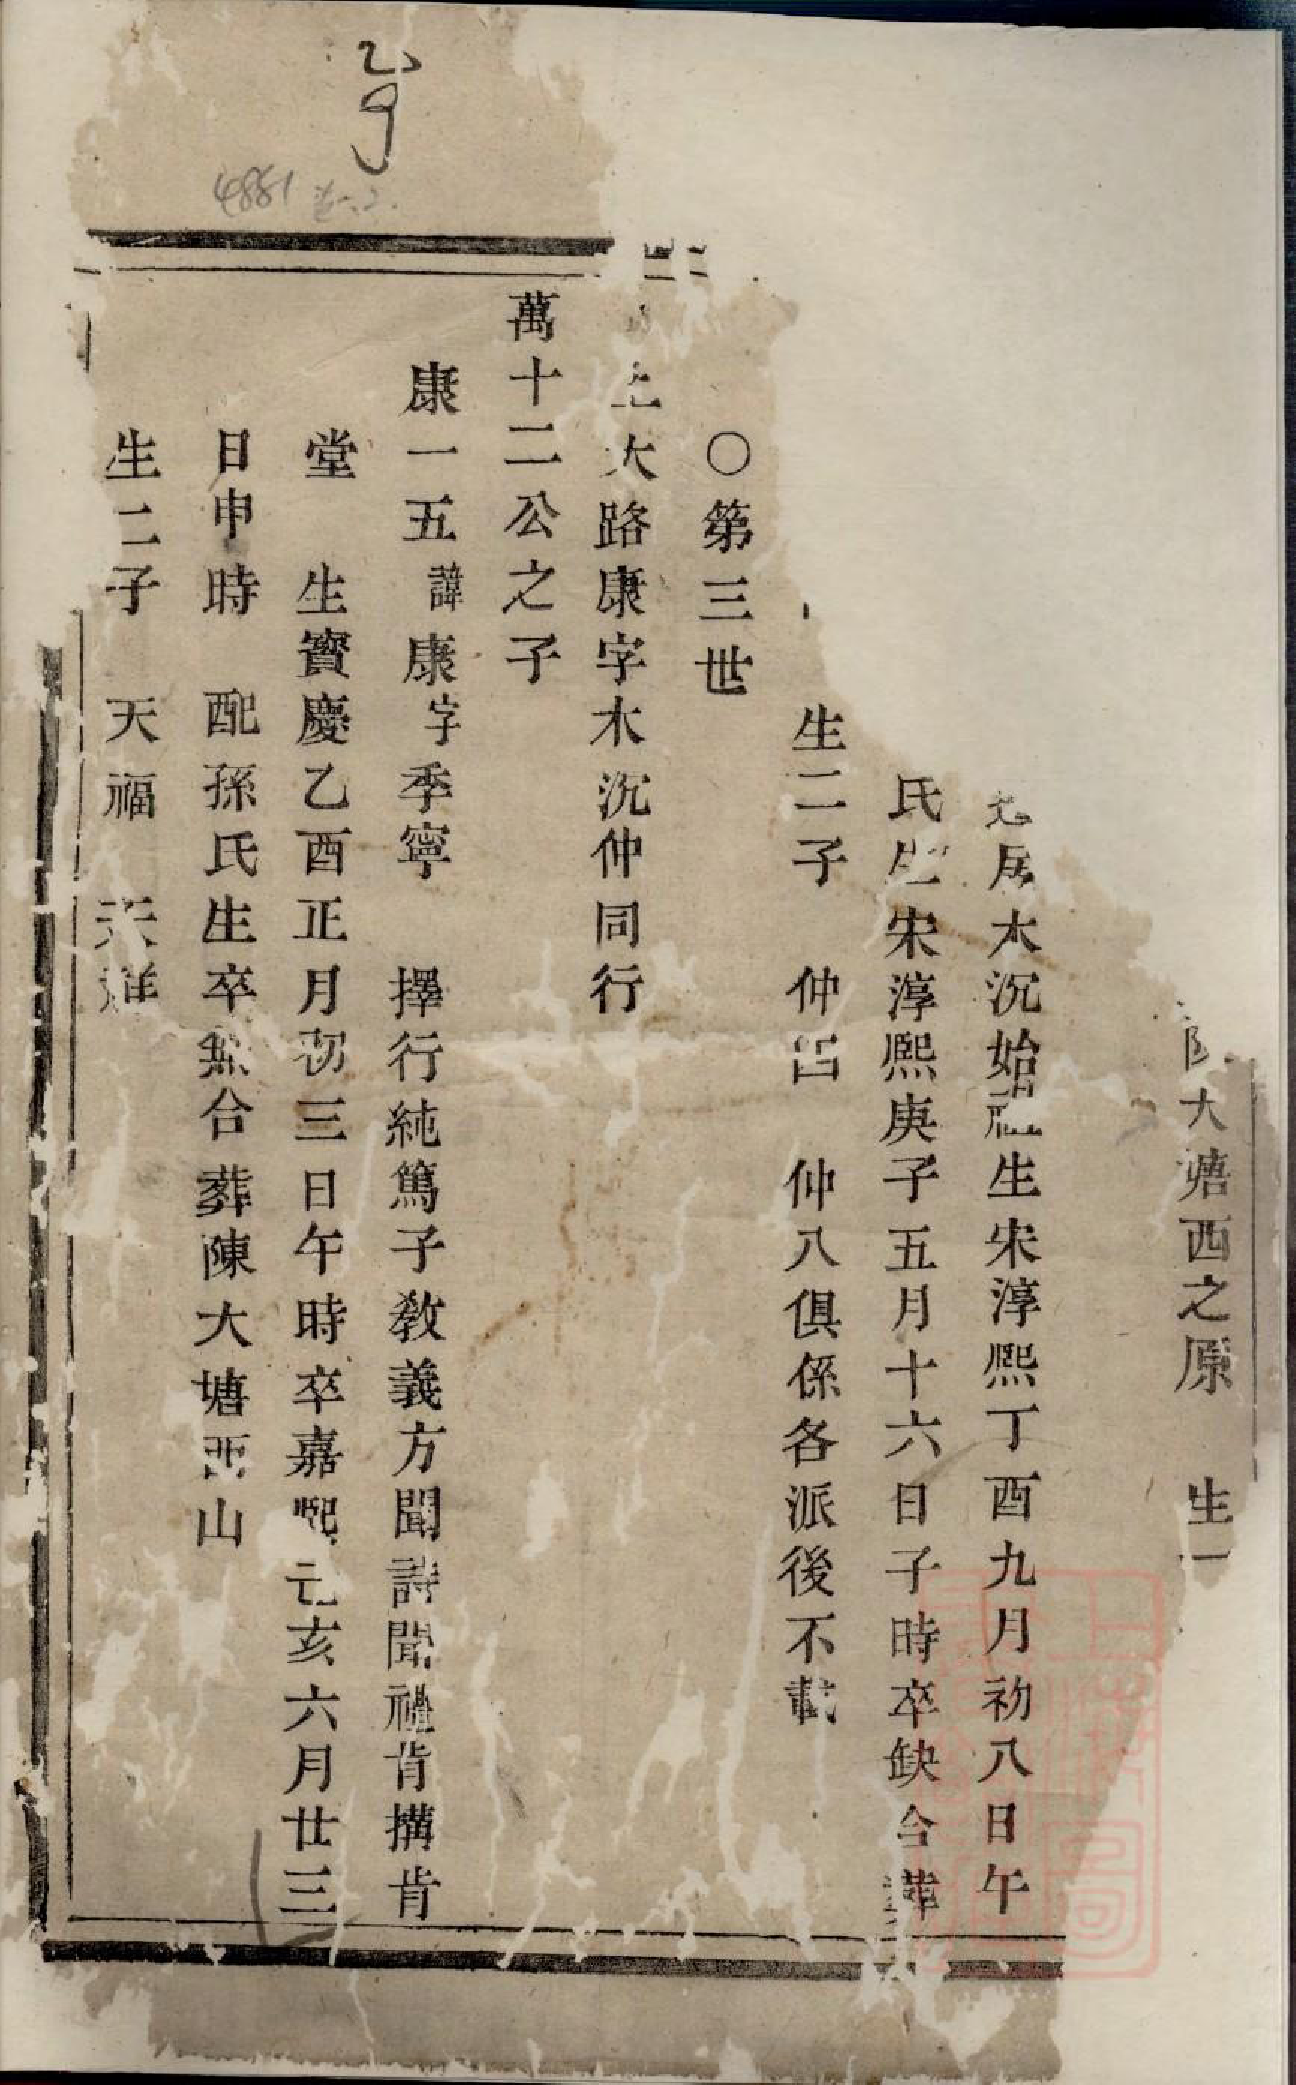 大塘西之原 生
居木沉始祖生宋淳熙丁酉九月初八日午
氏生宋淳熙庚子五月十六日子時卒缺合葬
生二子 仲 仲八俱係各派後不載
○第三世
大路康字木沉仲同行
萬十二公之子
康一五諱康字季寧 擇行純篤子教義方聞詩聞禮肯搆肯
堂 生寶慶乙酉正月初三日午時卒嘉熙己亥六月廿三
日申時 配孫氏生卒無合葬陳大塘西山
生二子 天福 天祥
4881